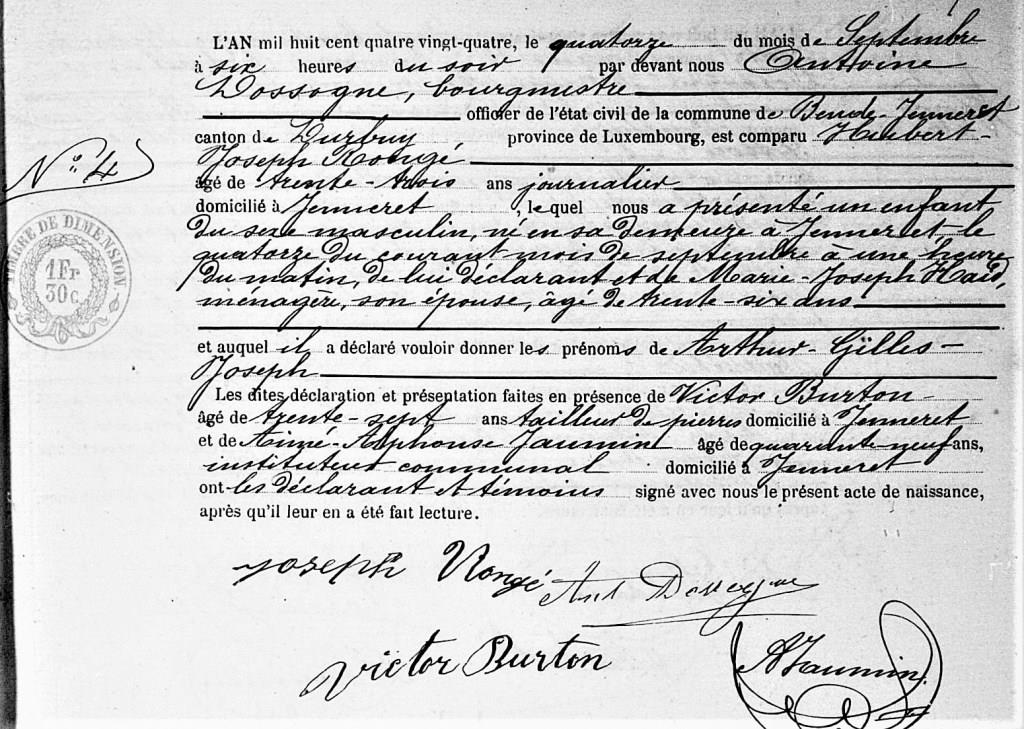 L'AN mil huit cent quatre vingt-quatre, le quatorze du mois de Septembre
à six heures du soir par devant nous Antoine
Dossogne, bourgmestre
officier de l'état civil de la commune de Bende-Jenneret
canton de Durbuy province de Luxembourg, est comparu Hubert-
Joseph Rongé
N° 4
âgé de trente-trois ans journalier
domicilié à Jenneret, le quel nous a présenté un enfant
du sexe masculin, né en sa demeure à Jenneret le
quatorze du courant mois de septembre à une heure
du matin, de lui déclarant et de Marie-Joseph
ménagère, son épouse, âgé de trente-six ans
TIMBRE DE DIMENSION
1 Fr
30 c.
et auquel il a déclaré vouloir donner les prénoms de Arthur-Gilles-
Joseph
Les dites déclaration et présentation faites en présence de Victor Burton
âgé de trente-sept ans tailleur de pierres domicilié à Jenneret
et de Aimé-Alphonse Jaumin âgé de quarante neuf ans,
instituteur communal domicilié à Jenneret
ont les déclarant et témoins signé avec nous le présent acte de naissance,
après qu'il leur en a été fait lecture.
Joseph Rongé
Ant Dossogne
Victor Burton
AJaumin